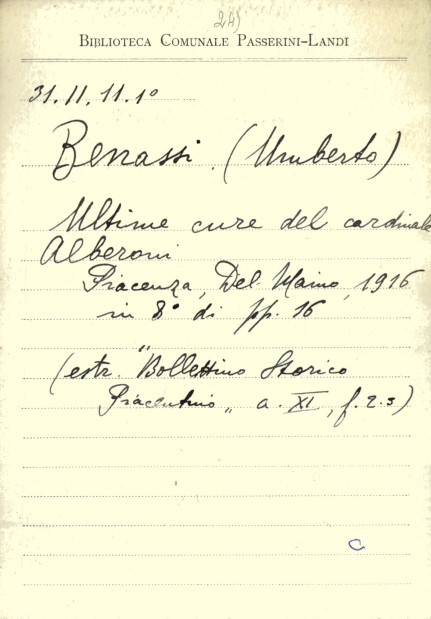 24)
BIBLIOTECA COMUNALE PASSERINI-LANDI
31.II.11.1º
Benassi (Umberto)
Ultime cure del cardinale
Alberoni
Piacenza, Del Maino, 1916
in 8º di pp. 16
(estr. "Bollettino Storico
Piacentino „ a. XI, f. 2.3)
C